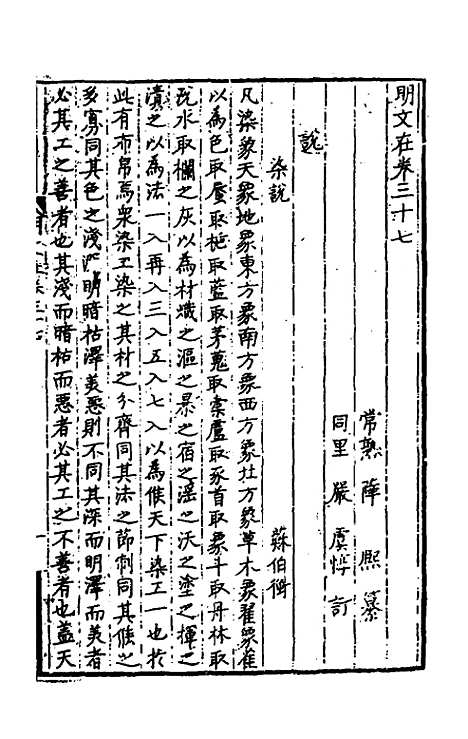 明文在卷三十七
常熟 薛 熙 纂
同里 嚴虞惇 訂
說
染說 蘇伯衡
凡染象天象地象東方象南方象西方象北方象草木象翟象雀
以為色取蜃取梔取藍取茅蒐取橐盧取豕首取象斗取丹林取
涗水取欄之灰以為材熾之漚之暴之宿之淫之沃之塗之揮之
漬之以為法一入再入三入五入七入以為候天下染工一也於
此有布帛焉眾染工染之其材之分齊同其法之節制同其候之
多寡同其色之淺深明暗枯澤美惡則不同其深而明澤而美者
必其工之善者也其淺而暗枯而惡者必其工之不善者也蓋天